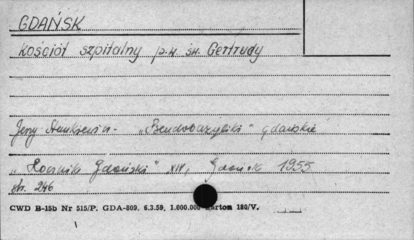 GDAŃSK
Kościół szpitalny p.w. św. Gertrudy
Jerzy Stankiewicz - "Pseudobazyliki" gdańskie
"Rocznik Gdański" XIV, Gdańsk 1955
str. 246
CWD B-15b Nr 515/P. GDA-809. 6.3.59, 1.000.000 karton 180/V.